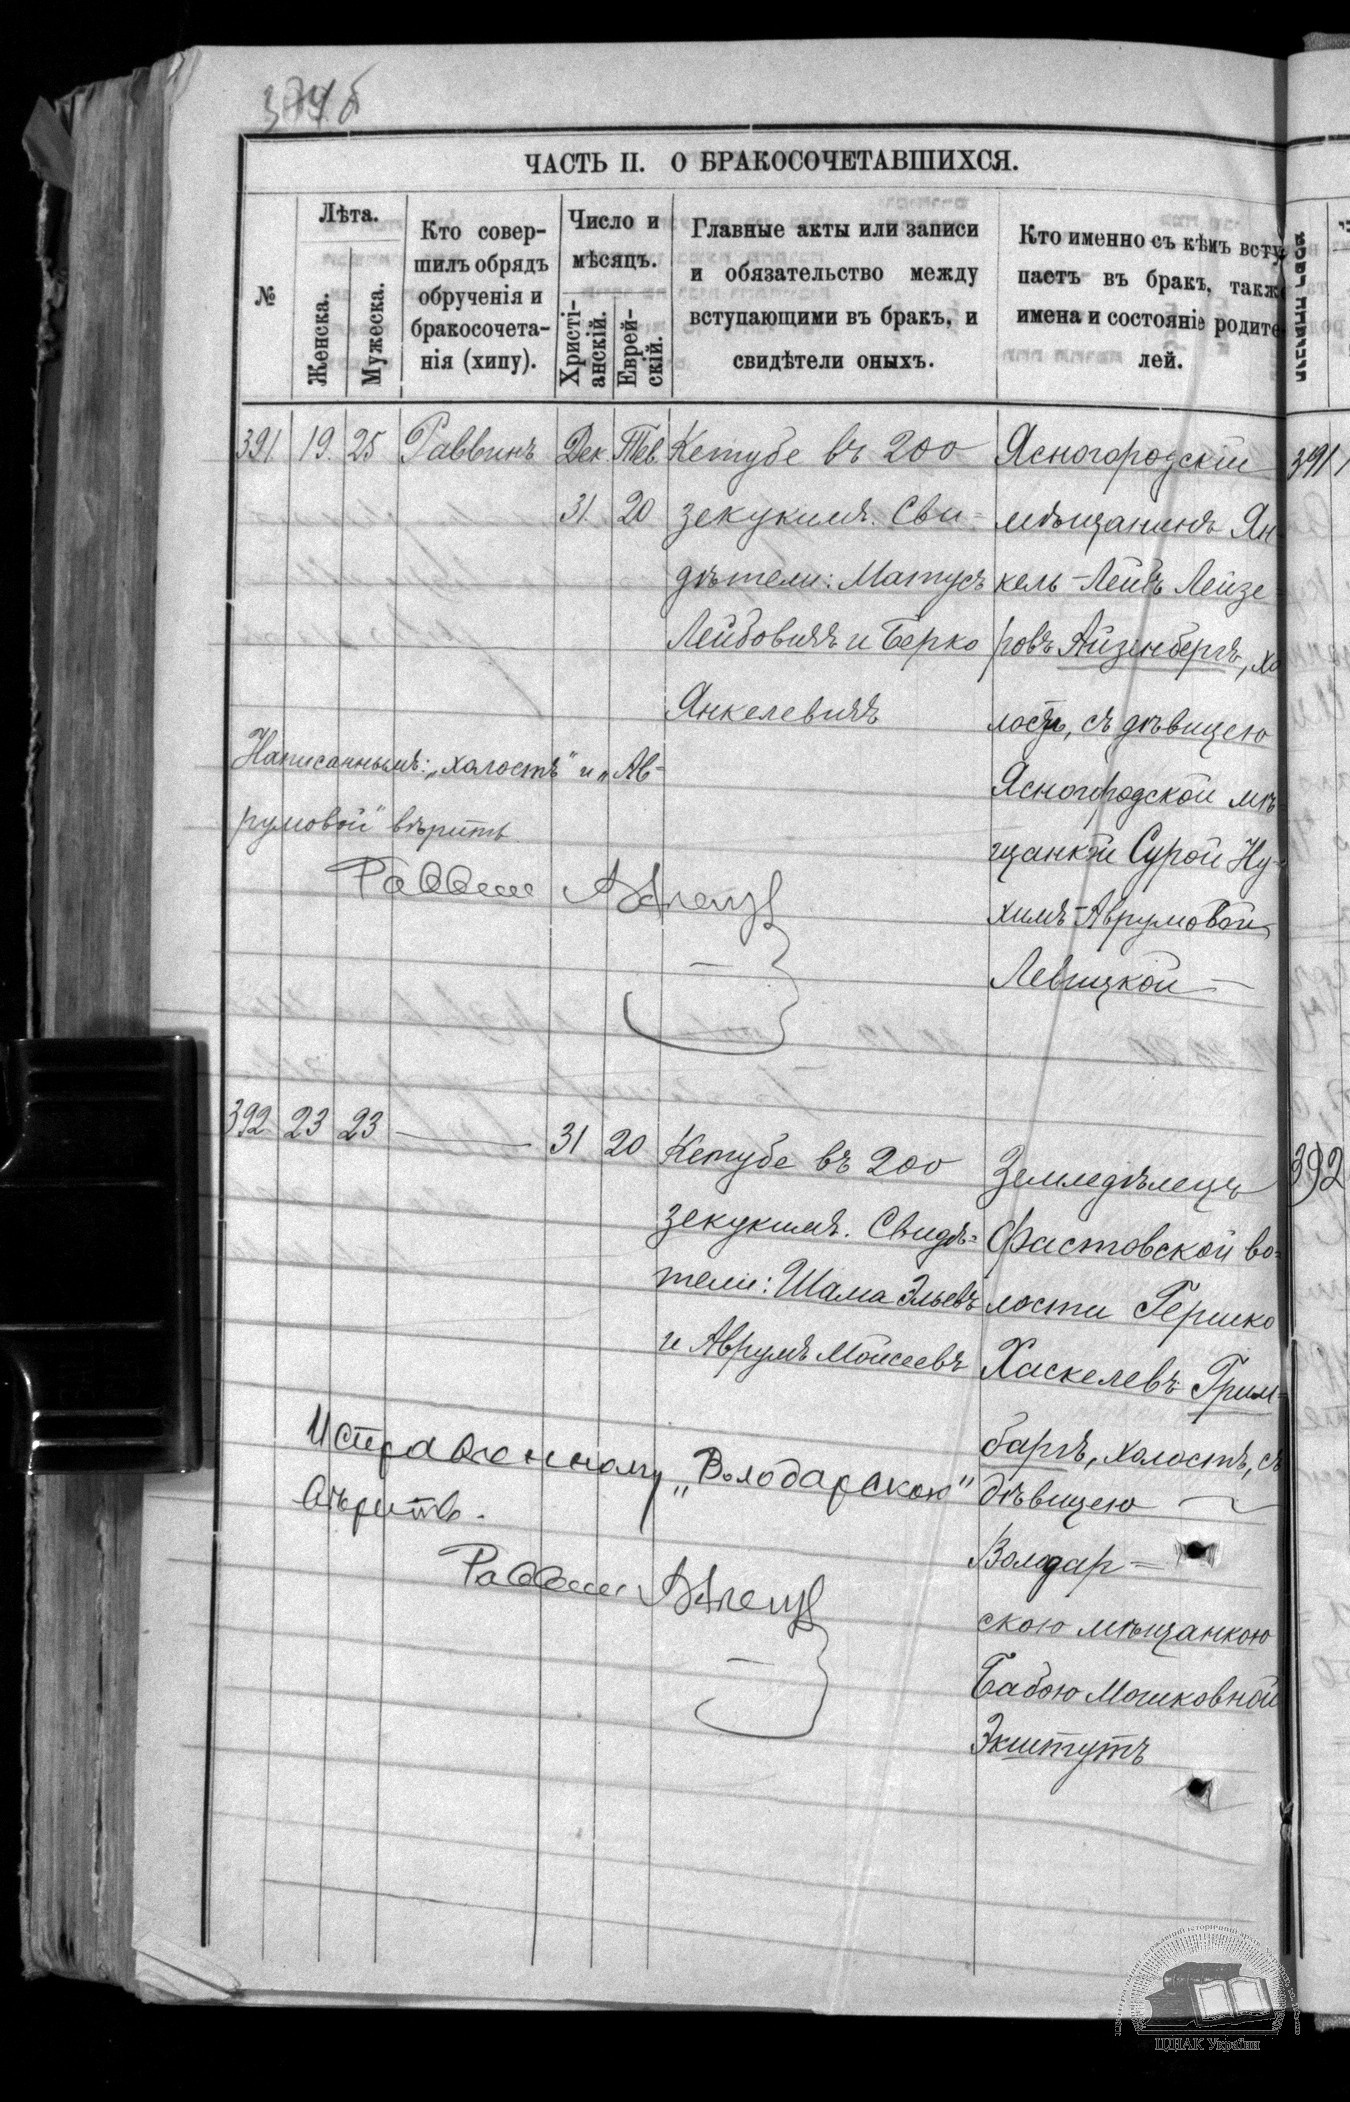 ЧАСТЬ II. О БРАКОСОЧЕТАВШИХСЯ.
№
Лѣта.
Женска.
Мужеска.
Кто совер-
шилъ обрядъ
обрученія и
бракосочета-
нія (хипу).
Число и
мѣсяцъ.
Христі-
анскій.
Еврей-
скій.
Главные акты или записи
и обязательство между
вступающими въ бракъ, и
свидѣтели оныхъ.
Кто именно съ кѣмъ всту
паетъ въ бракъ, такж
имена и состояніе родите
лей.
391 19. 25 Раввинъ Дек. Тев.
31. 20
Кетубе въ 200
зекукимъ. Сви-
дѣтели: Матусъ
Лейбовичъ и Берко
Янкелевичъ
Ясногородскій
мѣщанинъ Ян-
кель-Лейбъ Лейзе-
ровъ Айзенбергъ, хо
лостъ, съ дѣвицею
Ясногородской мѣ-
щанкой Сурой Ну-
химъ-Аврумовой
Левицкой
391
Написаннымъ: „холостъ" и „Ав-
румовой" вѣрить
Раввин
392 23 23 — 31 20
Кетубе въ 200
зекукимъ. Свидѣ-
тели: Шама Эльевъ
и Аврумъ Мойсеевъ
Земледѣлецъ
Фастовской во-
лости Гершко
Хаскелевъ Грим-
баргъ, холостъ, съ
дѣвицею
Володар-
скою мѣщанкою
Бабою Мошковной
Экштутъ
392
Исправленному „Володарскою"
вѣрить.
Раввин
ЦДІАК України